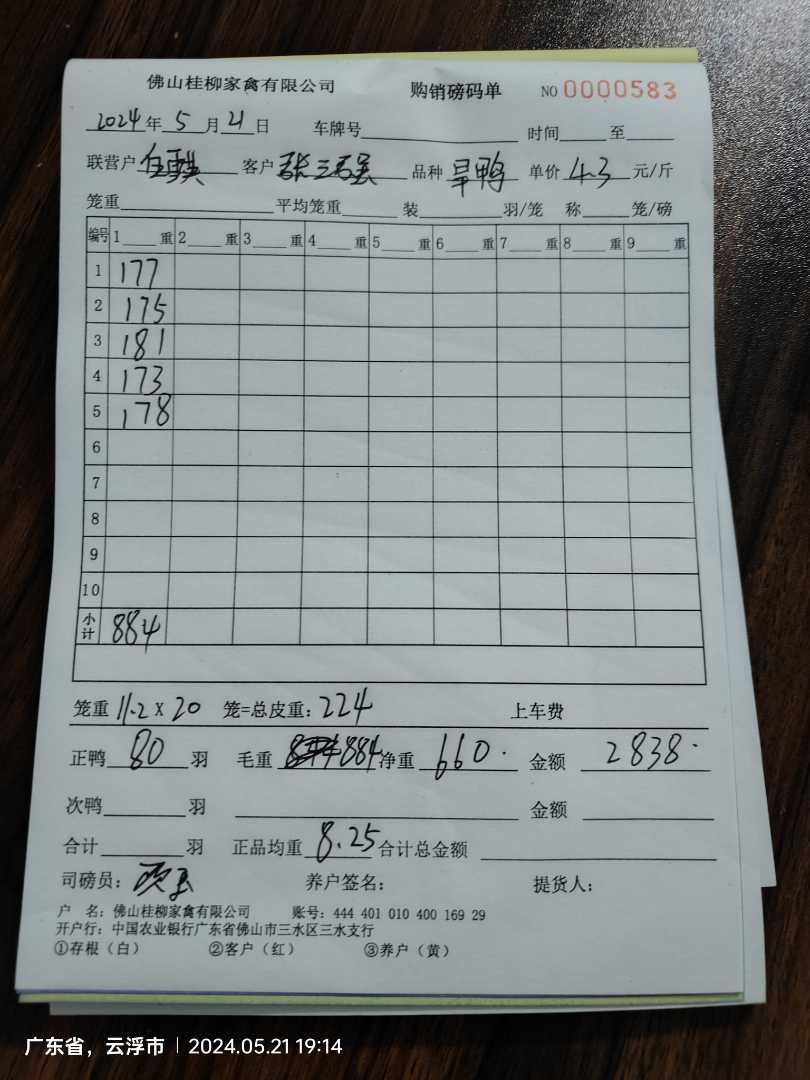 佛山桂柳家禽有限公司 购销磅码单 NO 0000583
2024年 5 月 21 日 车牌号 时间 至
联营户 客户 张三 品种 旱鸭 单价 4.3 元/斤
笼重 平均笼重 装 羽/笼 称 笼/磅
编号 1 重 2 重 3 重 4 重 5 重 6 重 7 重 8 重 9 重
1 177
2 175
3 181
4 173
5 178
6
7
8
9
10
小计 884
笼重 11.2 X 20 笼=总皮重: 224 上车费
正鸭 80 羽 毛重 884 净重 660. 金额 2838.
次鸭 羽 金额
合计 羽 正品均重 8.25 合计总金额
司磅员: 养户签名: 提货人:
户 名: 佛山桂柳家禽有限公司 账号: 444 401 010 400 169 29
开户行: 中国农业银行广东省佛山市三水区三水支行
①存根（白） ②客户（红） ③养户（黄）
广东省，云浮市 | 2024.05.21 19:14